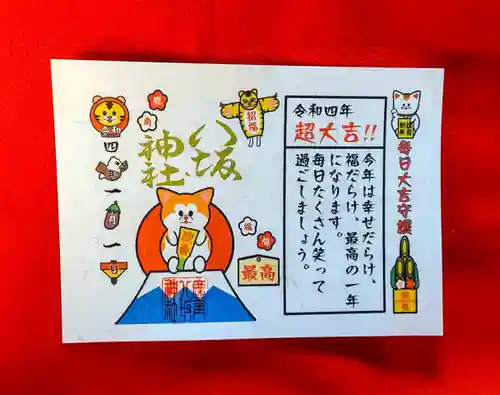 令和四年
超大吉!!
今年は幸せだらけ、
福だらけ、最高の一年
になります。
毎日たくさん笑って
過ごしましょう。
毎日大吉守護
招福
八坂
神社
令和
四
一
一
日
福
福
最高